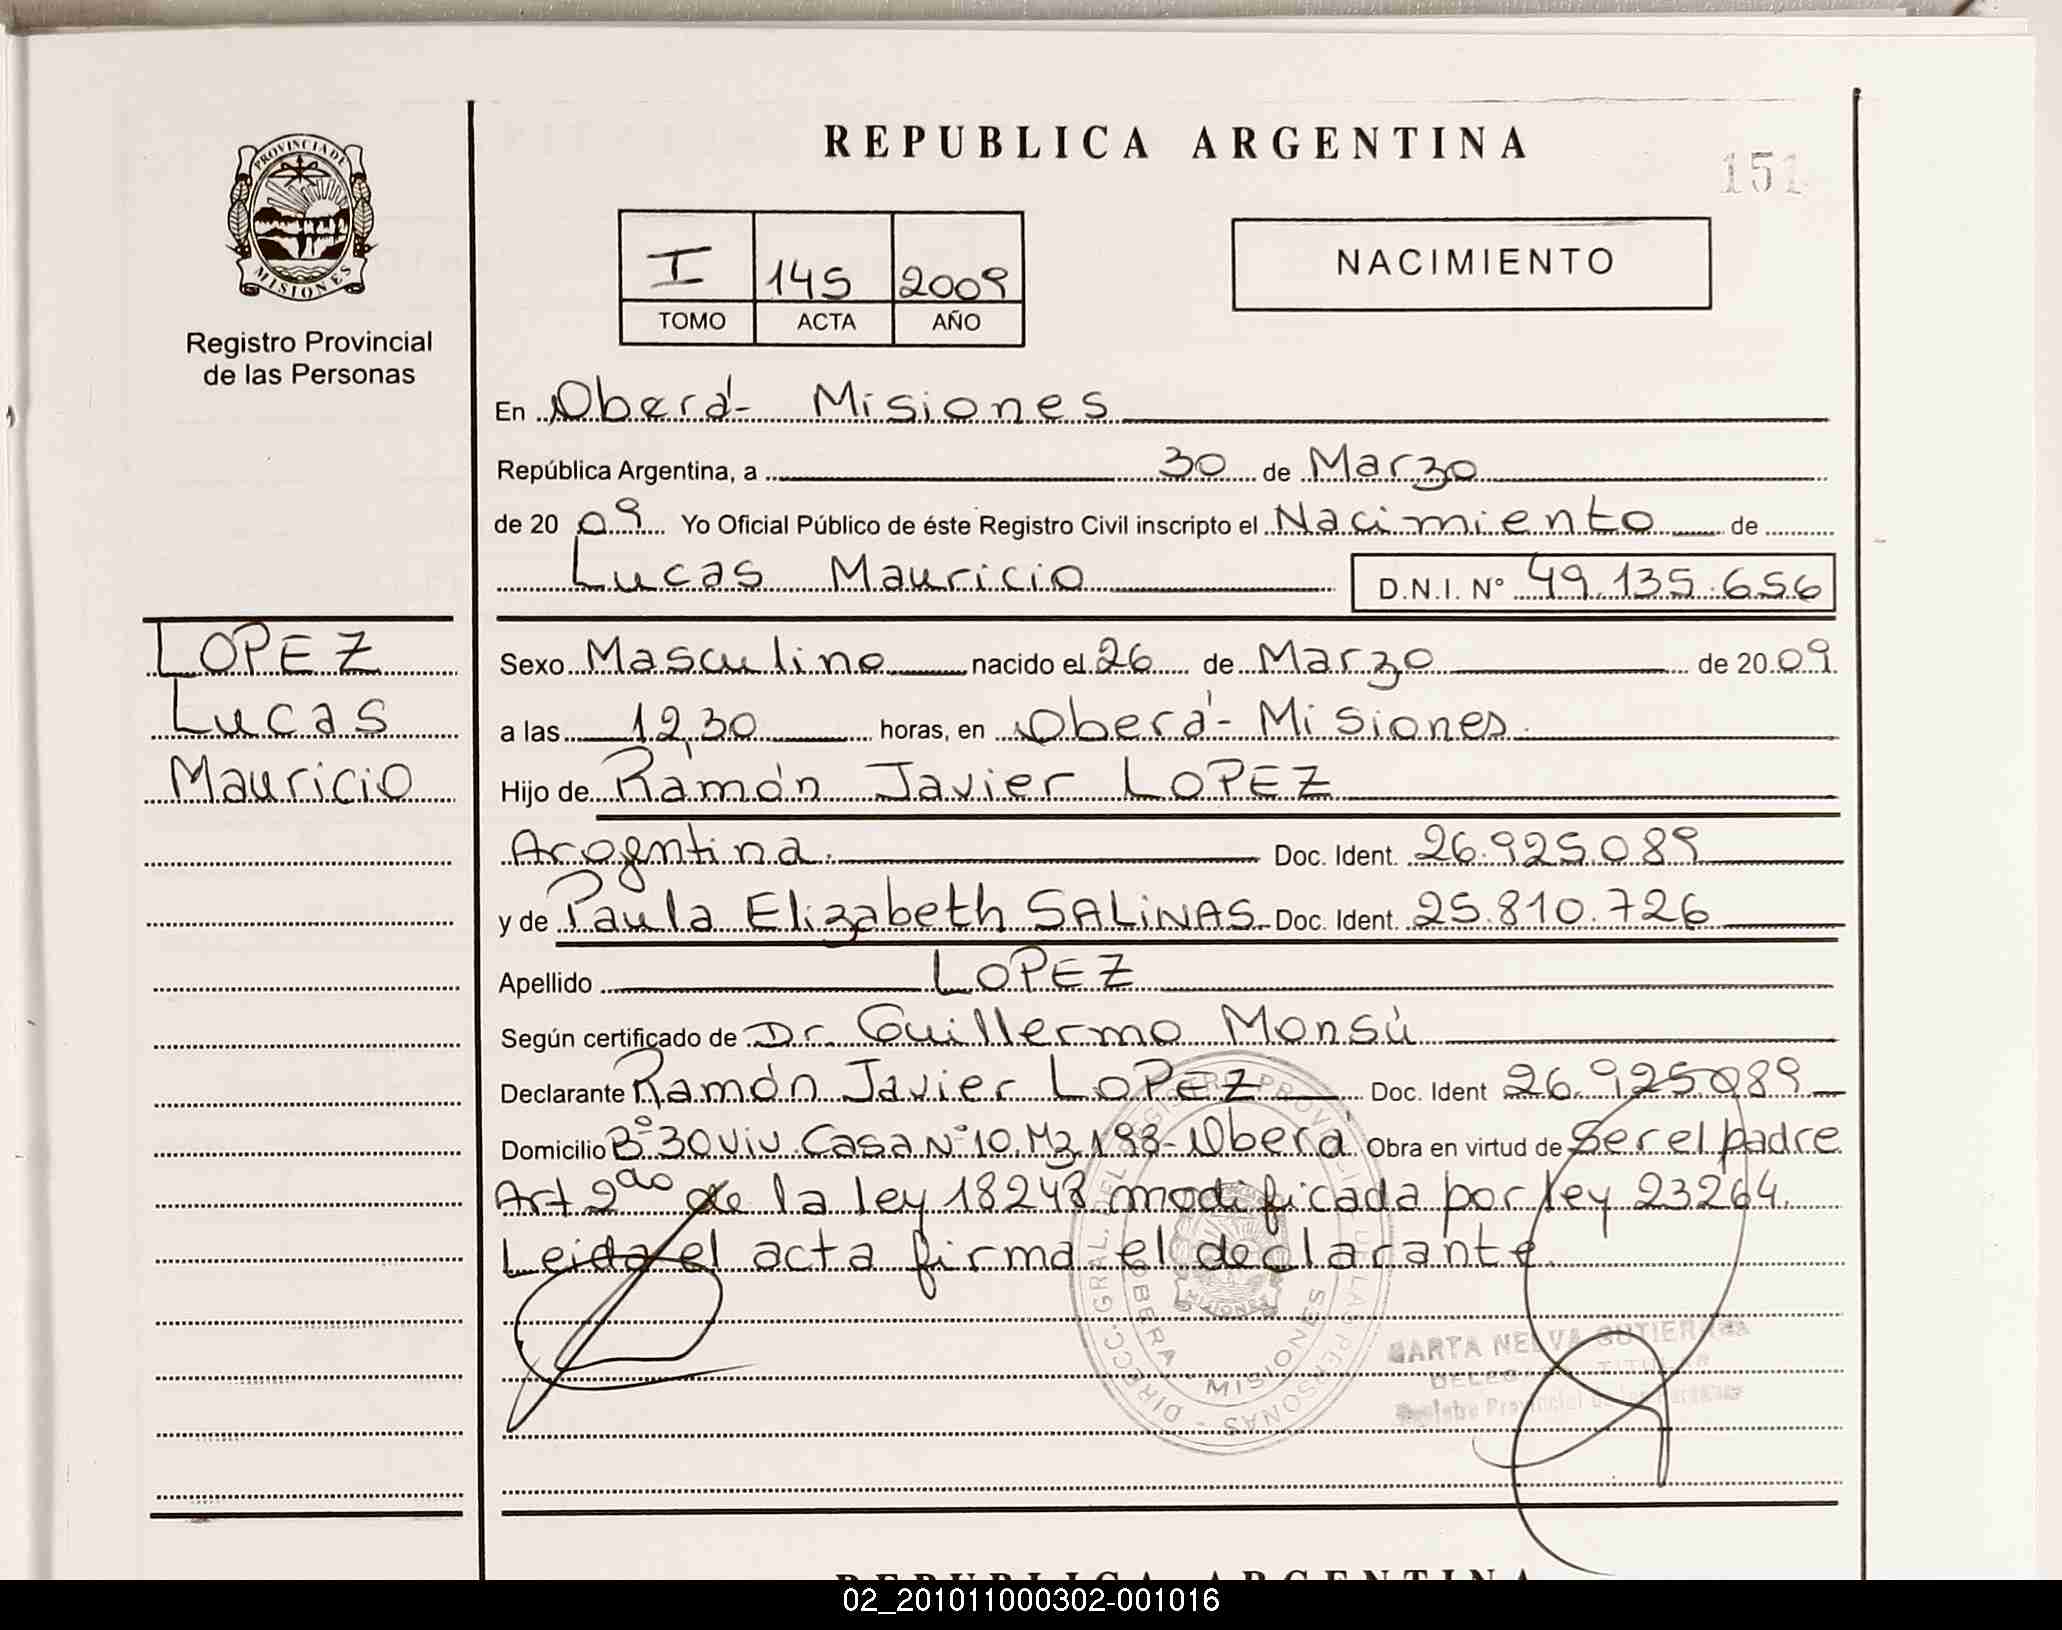 REPUBLICA ARGENTINA
151
PROVINCIA DE
MISIONES
Registro Provincial
de las Personas
I 145 2009
TOMO ACTA AÑO
NACIMIENTO
En Oberá - Misiones
República Argentina, a 30 de Marzo
de 20 09 Yo Oficial Público de éste Registro Civil inscripto el Nacimiento de
Lucas Mauricio D.N.I. N° 49.135.656
LOPEZ
Lucas
Mauricio
Sexo Masculino nacido el 26 de Marzo de 20 09
a las 12,30 horas, en Oberá - Misiones.
Hijo de Ramón Javier LOPEZ
Argentina. Doc. Ident. 26.925.089
y de Paula Elizabeth SALINAS Doc. Ident. 25.810.726
Apellido LOPEZ
Según certificado de Dr. Guillermo Monsú
Declarante Ramón Javier LOPEZ Doc. Ident 26.925.089
Domicilio B° 30 Viv. Casa N° 10. Mz 198 - Oberá Obra en virtud de Ser el padre
Art 2do de la ley 18248 modificada por ley 23264.
Leida el acta firma el declarante.
DIRECC. GRAL. DEL REGISTRO PROVINCIAL DE LAS PERSONAS
OBERA - MISIONES
MISIONES
MARTA NELVA GUTIERREZ
DELEGADA TITULAR
Registro Provincial de las Personas
REPUBLICA ARGENTINA
02_201011000302-001016